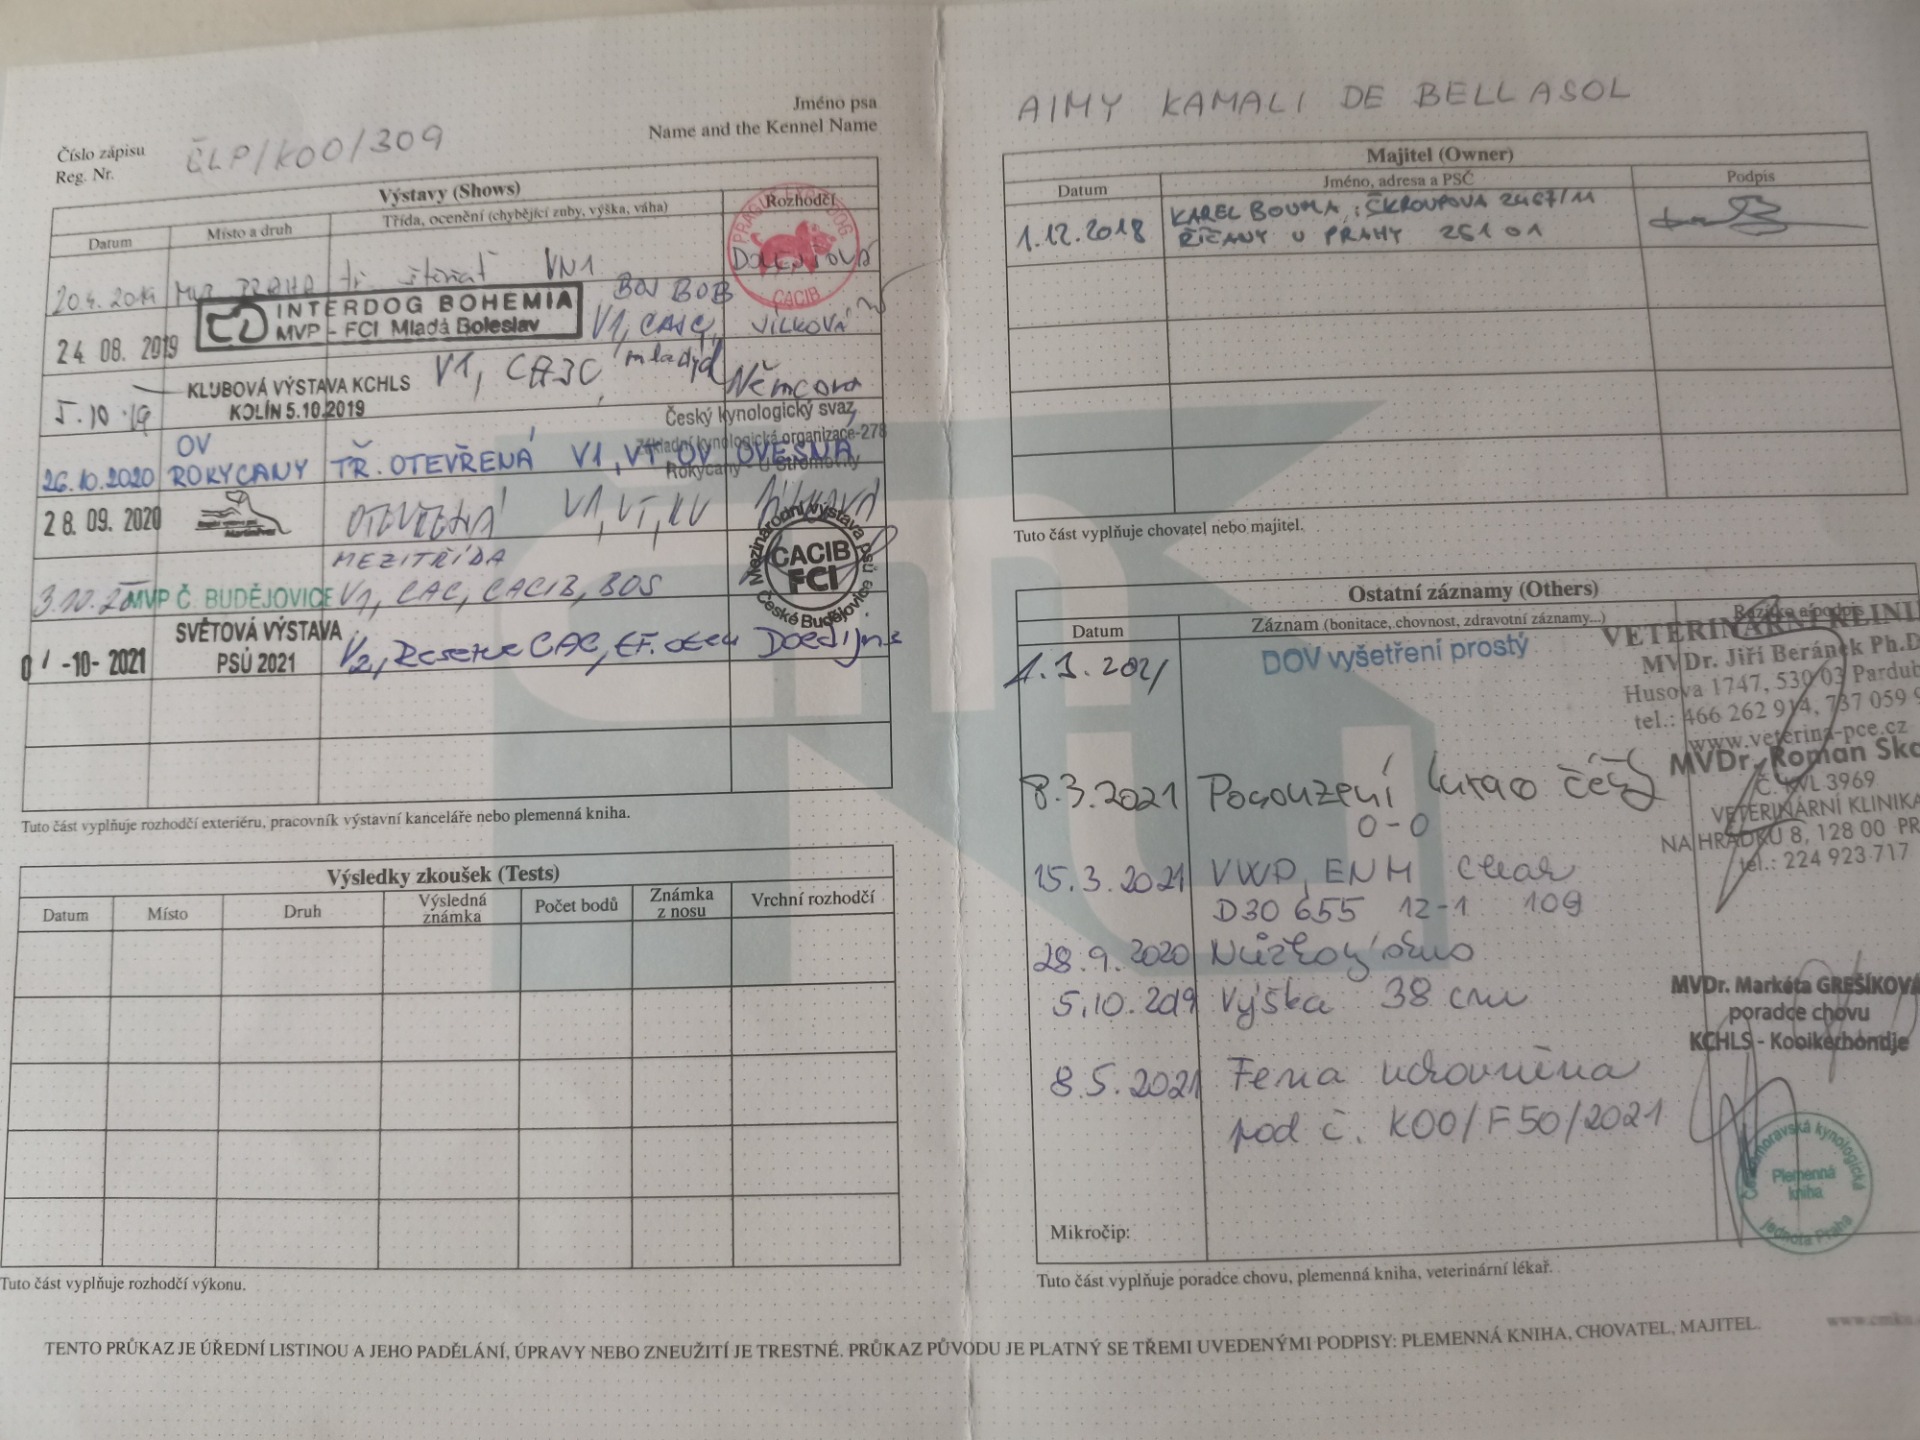 Číslo zápisu
Reg. Nr.
ČLP/KOO/309
Jméno psa
Name and the Kennel Name
Výstavy (Shows)
Datum
Místo a druh
Třída, ocenění (chybějící zuby, výška, váha)
Rozhodčí
PRAHA tř. VN1
CACIB
INTERDOG BOHEMIA
MVP - FCI Mladá Boleslav
BOJ BOB
24 08. 2019
V1, CAJC,
VÍLKOVÁ
5.10.19
KLUBOVÁ VÝSTAVA KCHLS
KOLÍN 5.10.2019
V1, CAJC, mladých
Němcova
Český kynologický svaz
Základní kynologická organizace-278
Rokycany - U Stromovity
26.10.2020
OV
ROKYCANY
TŘ. OTEVŘENÁ V1, VT OV OVESNÁ
28. 09. 2020
OTEVŘENÁ V1, VT, KV
Mezinárodní výstava psů
CACIB
FCI
České Budějovice
MVP Č. BUDĚJOVICE
MEZITŘÍDA
V1, CAC, CACIB, BOS
-10- 2021
SVĚTOVÁ VÝSTAVA
PSŮ 2021
V2, Reserve CAC,
Tuto část vyplňuje rozhodčí exteriéru, pracovník výstavní kanceláře nebo plemenná kniha.
Výsledky zkoušek (Tests)
Datum
Místo
Druh
Výsledná
známka
Počet bodů
Známka
z nosu
Vrchní rozhodčí
Tuto část vyplňuje rozhodčí výkonu.
AIMY KAMALI DE BELLASOL
Majitel (Owner)
Datum
Jméno, adresa a PSČ
Podpis
1.12.2018
KAREL BOUMA, ŠKROUPOVA 2467/11
ŘÍČANY U PRAHY 251 01
Tuto část vyplňuje chovatel nebo majitel.
Ostatní záznamy (Others)
Datum
Záznam (bonitace, chovnost, zdravotní záznamy...)
Razítko a podpis
1.3.2021
DOV vyšetření prostý
VETERINÁRNÍ KLINI
MVDr. Jiří Beránek Ph.D
Husova 1747, 530 03 Pardub
tel.: 466 262 914, 737 059 9
www.veterina-pce.cz
8.3.2021
Posouzení
0-0
MVDr. Roman Ska
Č. KVL 3969
VETERINÁRNÍ KLINIKA
NA HRÁDKU 8, 128 00 PR
tel.: 224 923 717
15.3.2021
VWD, ENM Clear
D30 655 12-1 109
28.9.2020
Nůžkový skus
5.10.2019
Výška 38 cm
MVDr. Markéta GREŠÍKOVÁ
poradce chovu
KCHLS - Kooikerhondje
8.5.2021
Fena uchovněna
pod č. KOO/F50/2021
Českomoravská kynologická
Plemenná
kniha
jednota Praha
Mikročip:
Tuto část vyplňuje poradce chovu, plemenná kniha, veterinární lékař.
TENTO PRŮKAZ JE ÚŘEDNÍ LISTINOU A JEHO PADĚLÁNÍ, ÚPRAVY NEBO ZNEUŽITÍ JE TRESTNÉ. PRŮKAZ PŮVODU JE PLATNÝ SE TŘEMI UVEDENÝMI PODPISY: PLEMENNÁ KNIHA, CHOVATEL, MAJITEL.